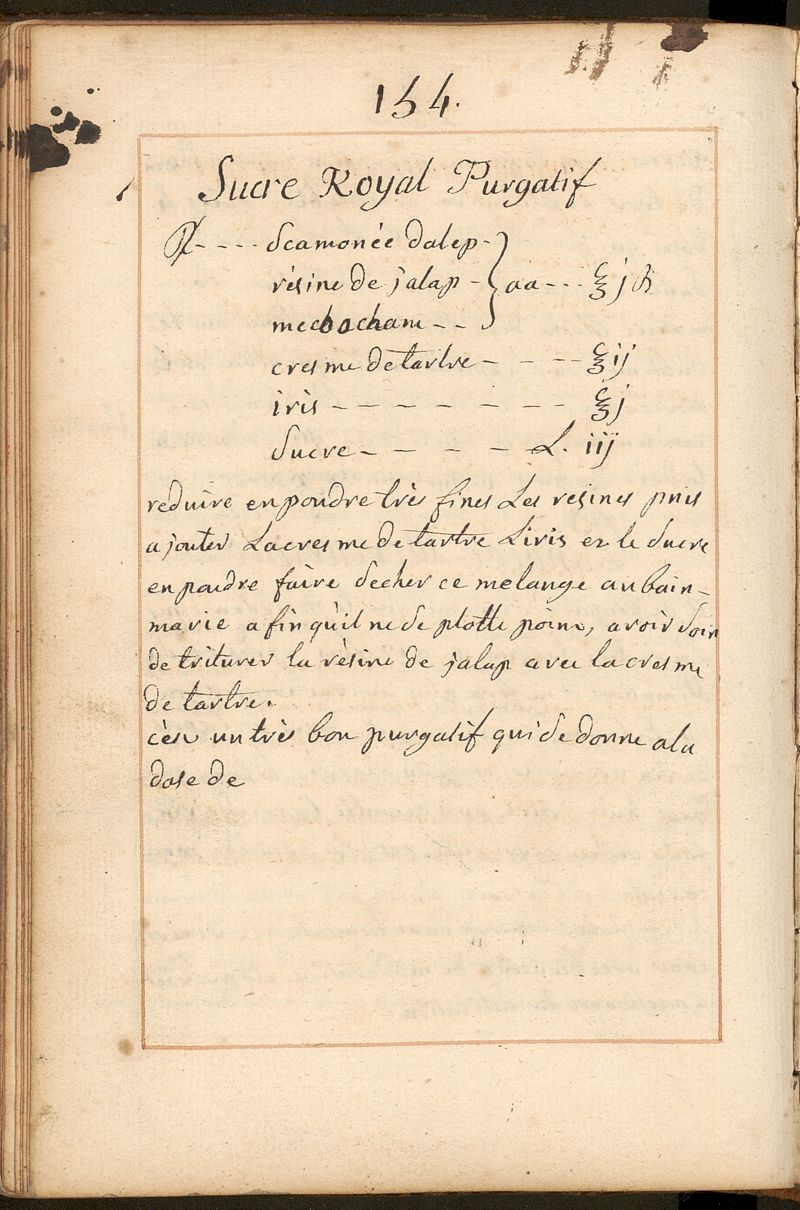 154.
Sucre Royal Purgatif
℞ - - - - scamonée dalep -
résine de jalap - } aa - - - ℥ j ß
mechocham - -
cresme de tartre - - - - ℥ ij
iris - - - - - - - ℥ j
sucre - - - - L. iij
reduire en poudre très fines Les resines puis
ajouter La cresme de tartre L'iris et le sucre
en poudre faire secher ce melange au bain-
marie afin qu'il ne se plotte point, avoir soin
de triturer la rèsine de jalap avec la cresme
de tartre.
cèst un très bon purgatif qui se donne a la
dose de